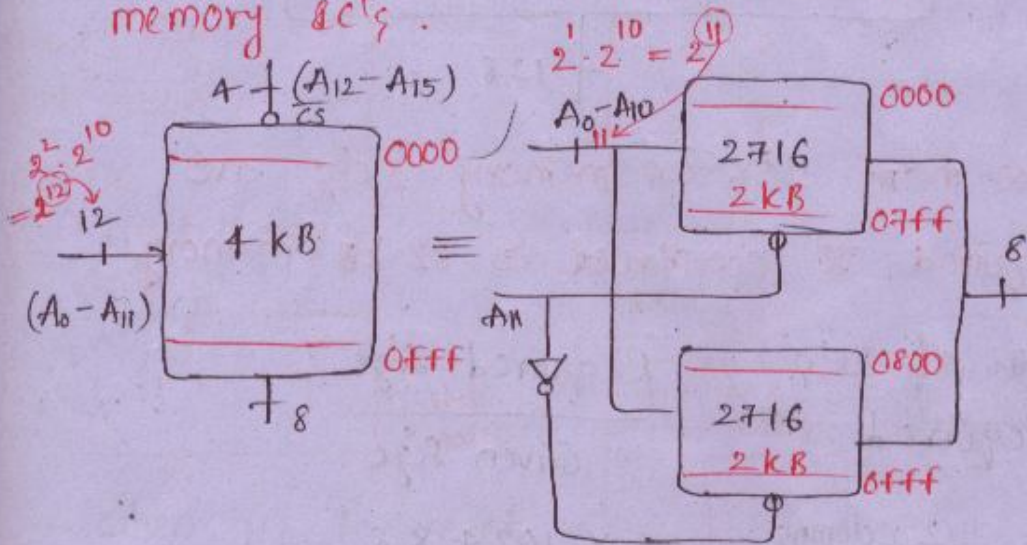 memory IC's.
4 (A12-A15)
CS
0000
2² · 2¹⁰
= 2¹²
12
4 kB
(A0-A11)
0fff
8
≡
2¹ · 2¹⁰ = 2¹¹
A0-A10
11
2716
2 kB
0000
07ff
A11
8
2716
2 kB
0800
0fff